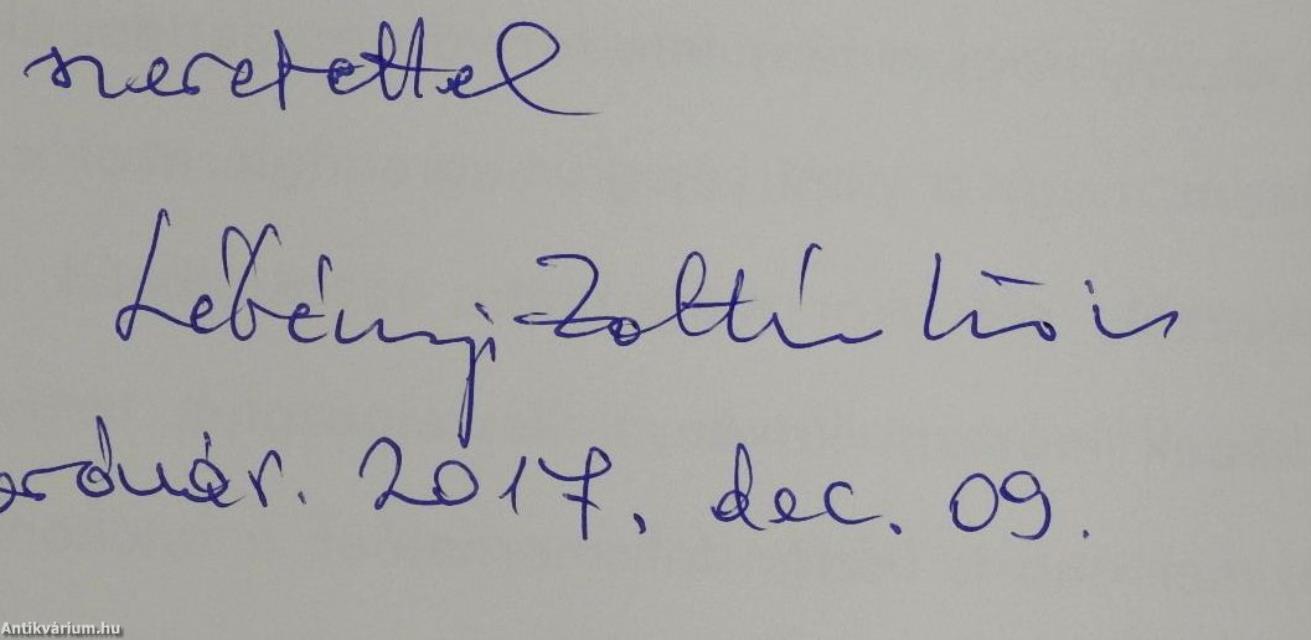 szeretettel
Lébényi Zoltán
orduár. 2017. dec. 09.
Antikvárium.hu